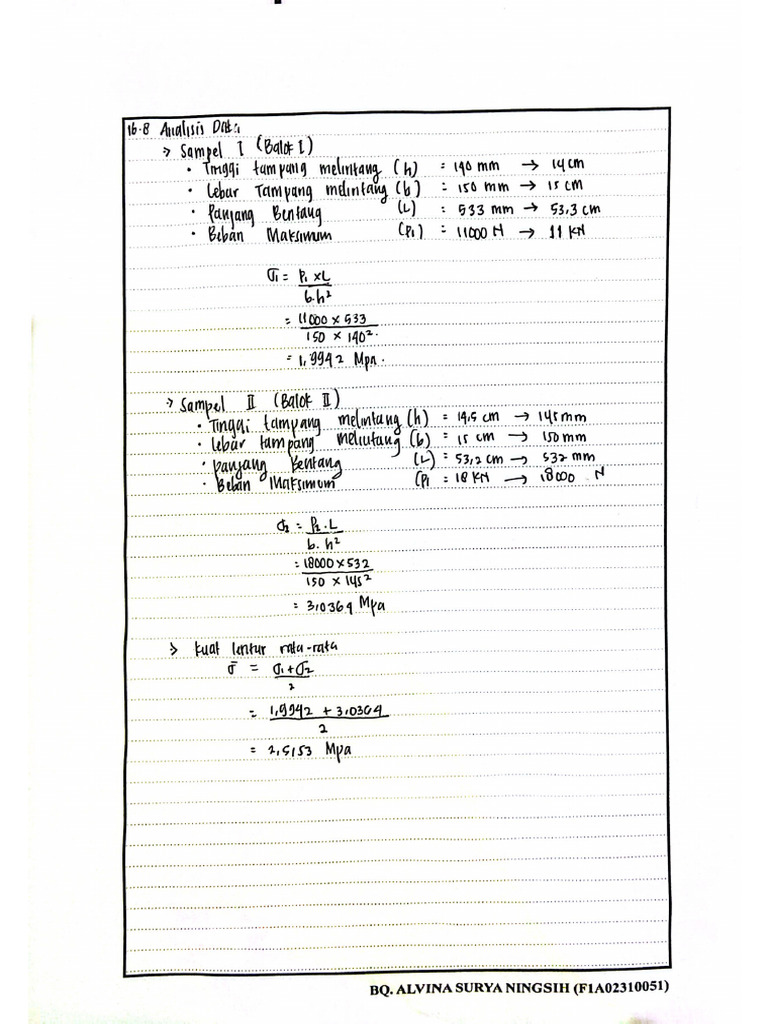 16.8 Analisis Data
→ Sampel I (Balok I)
• Tinggi tampang melintang (h) = 140 mm → 14 cm
• Lebar Tampang melintang (b) = 150 mm → 15 cm
• Panjang Bentang (L) = 533 mm → 53,3 cm
• Beban Maksimum (P1) = 11000 N → 11 KN
σ1 = P1 x L
b.h²
= 11000 x 533
150 x 140²
= 1,9942 Mpa.
→ Sampel II (Balok II)
• Tinggi tampang melintang (h) = 14,5 cm → 145 mm
• Lebar tampang melintang (b) = 15 cm → 150 mm
• Panjang Bentang (L) = 53,2 cm → 532 mm
• Beban Maksimum (P1 = 18 KN → 18000 N
σ2 = P2 . L
b. h²
= 18000 x 532
150 x 145²
= 3,0364 Mpa
→ Kuat lentur rata-rata
σ̄ = σ1 + σ2
2
= 1,9942 + 3,0364
2
= 2,5153 Mpa
BQ. ALVINA SURYA NINGSIH (F1A02310051)